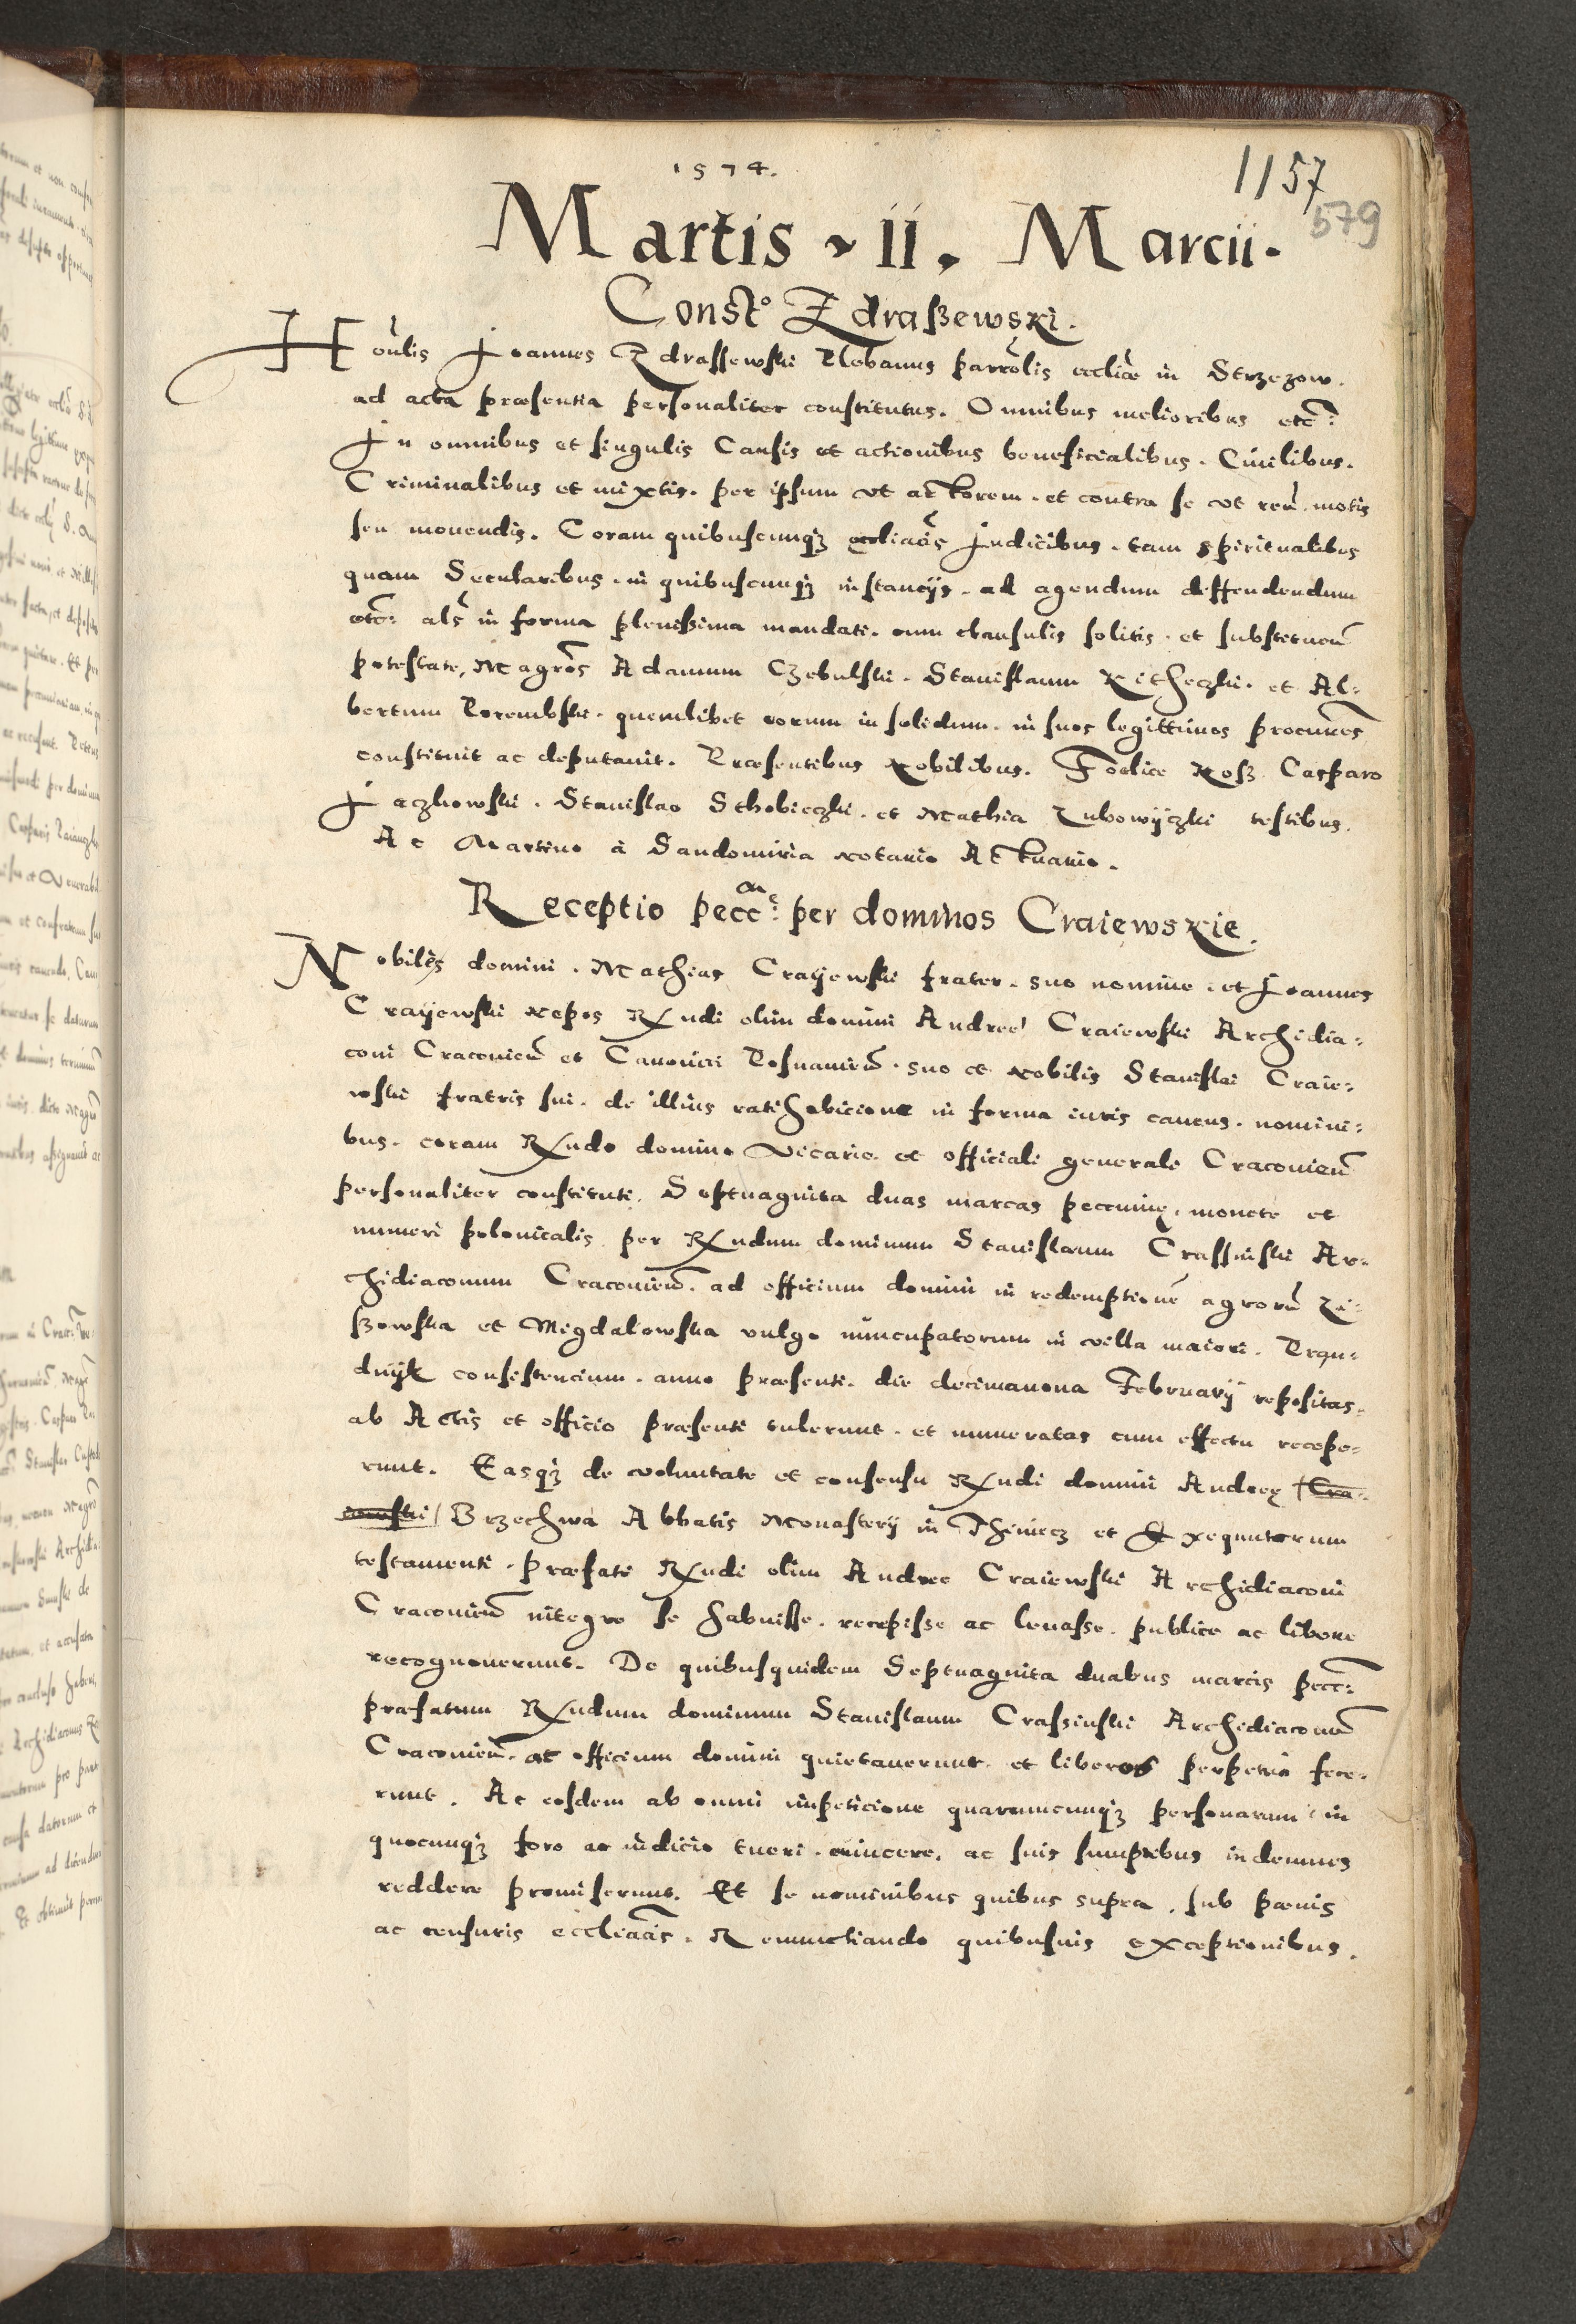 1574.
1157
579
Martis ii. Marcii.
Const° Zdraßewski.
Honlis Joannes Zdrassewski Plebanus parrolis eccliae in Strzezow.
ad acta praesentia personaliter constitutus. Omnibus melioribus etc:
In omnibus et singulis Causis et actionibus beneficialibus. Ciuilibus.
Criminalibus et mixtis. per ipsum ut actorem. et contra se ut reu motis
seu mouendis. Coram quibuscunqz eccliacis Iudicibus. tam spiritualibus
quam Secularibus. in quibuscunqz instancijs. ad agendum deffendendum
etc: als in forma plenißima mandati. cum clausulis solitis. et substituen
potestate, Magros Adamum Czebulski. Stanislaum Ritheczki. et Al=
bertum Porembski. quemlibet eorum in solidum. in suos legittimos procures
constituit ac deputauit. Praesentibus Nobilibus. Foelice Roß. Casparo
Jaczkowski. Stanislao Sthobieczki. et Mathia Zubowyczki testibus.
Ac Martino à Sandomiria Notario Actuario.
Receptio pecc: per dominos Craiewskie.
Nobiles domini. Mathias Crayewski frater. suo nomine. et Joannes
Crayewski Nepos Rxndi olim domini Andree Craiewski Archidia=
coni Cracouien et Canonici Posnanien. suo et Nobilis Stanislai Craie=
wski fratris sui. de illius ratihabicione in forma iuris cauens. nomini=
bus. coram Rxndo domino Vicario. et officiali generali Cracouien
personaliter constituti. Septuaginta duas marcas peccunię. monete et
numeri polonicalis per Rxndum dominum Stanislaum Crassinski Ar=
chidiaconum Cracouien. ad officium domini in redemptione agroru Zi=
ßowska et Migdalowska vulgo nuncupatorum in villa maiori. Prąn=
dnyk consistencium. anno praesenti. die decimanona February repositas.
ab Actis et officio praesenti tulerunt. et numeratas cum effectu recepe=
runt. Easqz de voluntate et consensu Rxndi domini Andreę Cra=
iewski Brzechwa Abbatis Monastery in Thiniecz et Exequutorum
testamenti. praefati Rxndi olim Andree Craiewski Archidiaconi
Cracouien integre se habuiße. recepisse ac leuasse. publice ac libere
recognouerunt. De quibusquidem Septuaginta duabus marcis pecc:
praefatum Rxndum dominum Stanislaum Crassinski Archidiaconu
Cracouien. ac officium domini quietauerunt. et liberos perpetuo fece=
runt. Ac eosdem ab omni impeticione quarumcunqz personarum in
quocunqz foro ac iudicio tueri. euincere. ac suis sumptibus indemnes
reddere promiserunt. Et se nominibus quibus supra. sub poenis
ac censuris eccliacis. Renunctiando quibusuis exceptionibus.